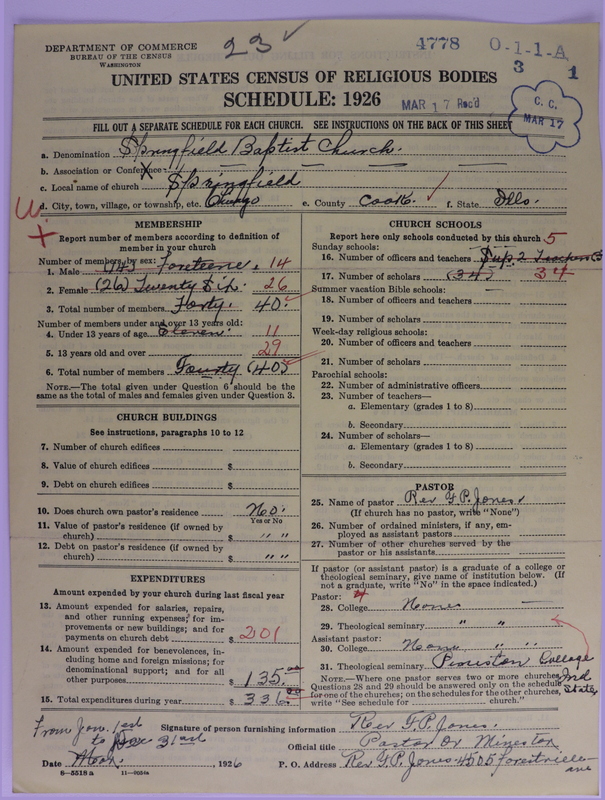 DEPARTMENT OF COMMERCE
BUREAU OF THE CENSUS
WASHINGTON
23 ✓
4778 0-1-1-A
3 1
UNITED STATES CENSUS OF RELIGIOUS BODIES
SCHEDULE: 1926
MAR 17 Rec'd
C. C.
MAR 17
FILL OUT A SEPARATE SCHEDULE FOR EACH CHURCH. SEE INSTRUCTIONS ON THE BACK OF THIS SHEET
a. Denomination Springfield Baptist Church.
b. Association or Conference X
c. Local name of church Springfield
d. City, town, village, or township, etc. Chicago e. County Cook. f. State Ills.
MEMBERSHIP
Report number of members according to definition of
member in your church
Number of members by sex:
1. Male (14) Fonteene. 14
2. Female (26) Twenty Six. 26
3. Total number of members Forty. 40
Number of members under and over 13 years old:
4. Under 13 years of age Eleven. 11
5. 13 years old and over 29
6. Total number of members Fourty (40)
NOTE.—The total given under Question 6 should be
same as the total of males and females given under Question 3.
CHURCH BUILDINGS
See instructions, paragraphs 10 to 12
7. Number of church edifices
8. Value of church edifices $
9. Debt on church edifices $
10. Does church own pastor's residence No.
Yes or No
11. Value of pastor's residence (if owned by
church) $ " "
12. Debt on pastor's residence (if owned by
church) $ " "
EXPENDITURES
Amount expended by your church during last fiscal year
13. Amount expended for salaries, repairs,
and other running expenses; for im-
provements or new buildings; and for
payments on church debt $ 201
14. Amount expended for benevolences, in-
cluding home and foreign missions; for
denominational support; and for all
other purposes $ 135.00
15. Total expenditures during year $ 336.00
CHURCH SCHOOLS
Report here only schools conducted by this church 5
Sunday schools:
16. Number of officers and teachers Sup 2 Teachers (3
17. Number of scholars (34) 34
Summer vacation Bible schools:
18. Number of officers and teachers
19. Number of scholars
Week-day religious schools:
20. Number of officers and teachers
21. Number of scholars
Parochial schools:
22. Number of administrative officers
23. Number of teachers—
a. Elementary (grades 1 to 8)
b. Secondary
24. Number of scholars—
a. Elementary (grades 1 to 8)
b. Secondary
PASTOR
25. Name of pastor Rev G.P. Jones.
(If church has no pastor, write "None")
26. Number of ordained ministers, if any, em-
ployed as assistant pastors
27. Number of other churches served by the
pastor or his assistants
If pastor (or assistant pastor) is a graduate of a college or
theological seminary, give name of institution below. (If
not a graduate, write "No" in the space indicated.)
Pastor: 4
28. College None
29. Theological seminary " "
Assistant pastor:
30. College None " "
31. Theological seminary College
NOTE.—Where one pastor serves two or more churches,
Questions 28 and 29 should be answered only on the schedule
for one of the churches; on the schedules for the other churches,
write "See schedule for church."
From Jan. 1st
to Dec 31st
Signature of person furnishing information Rev G.P. Jones.
Official title Pastor Or Minestor
Date 1926 P. O. Address Rev G.P. Jones 4505 Forestville
ave
8—5518 a 11—9054a